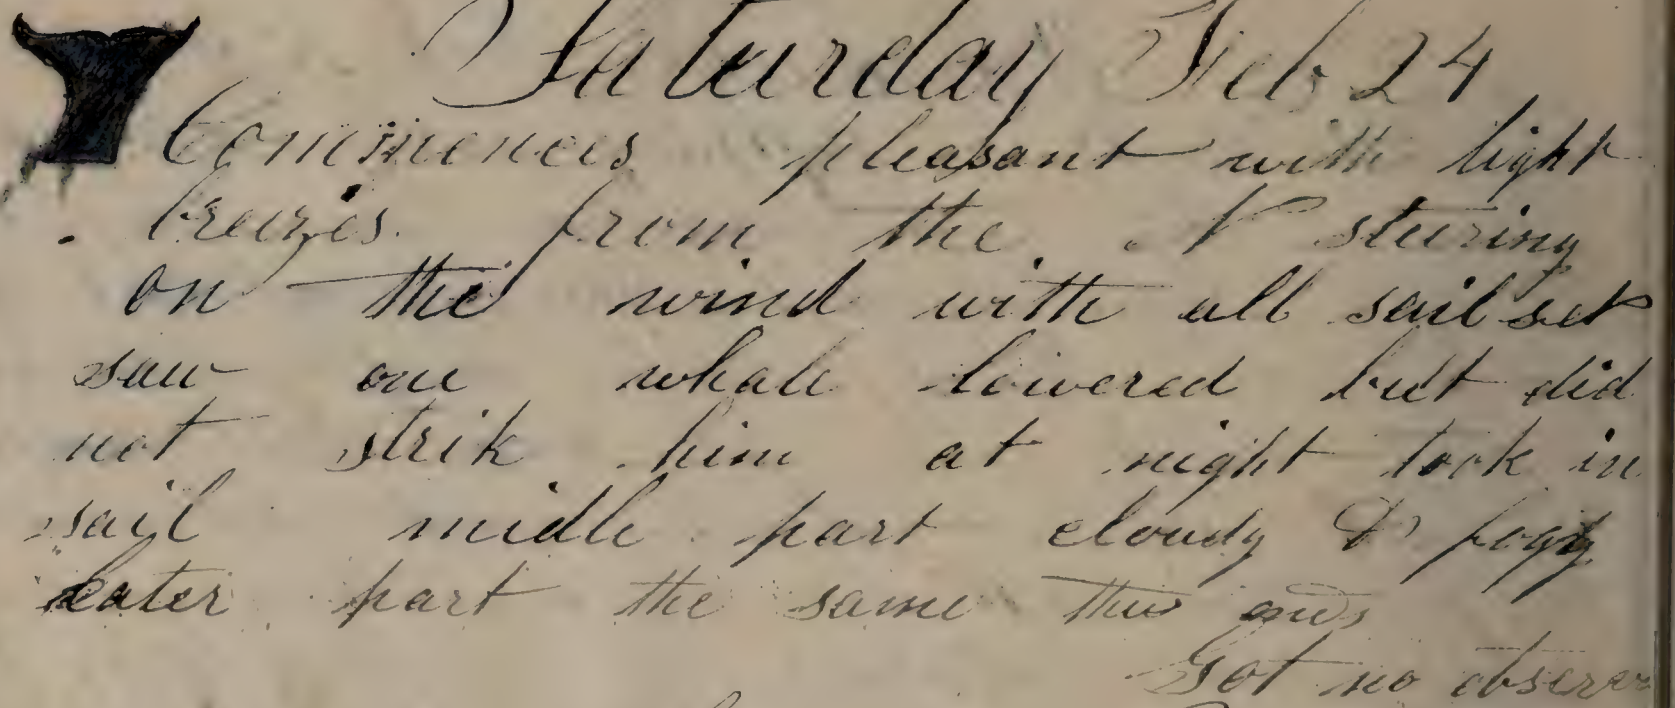 Saturday Feb 24
Commences pleasant with light
breezes from the N steering
on the wind with all sail set
saw one whale lowered but did
not strik him at night took in
sail midle part cloudy & fogy
later part the same thus ends
Got no observ